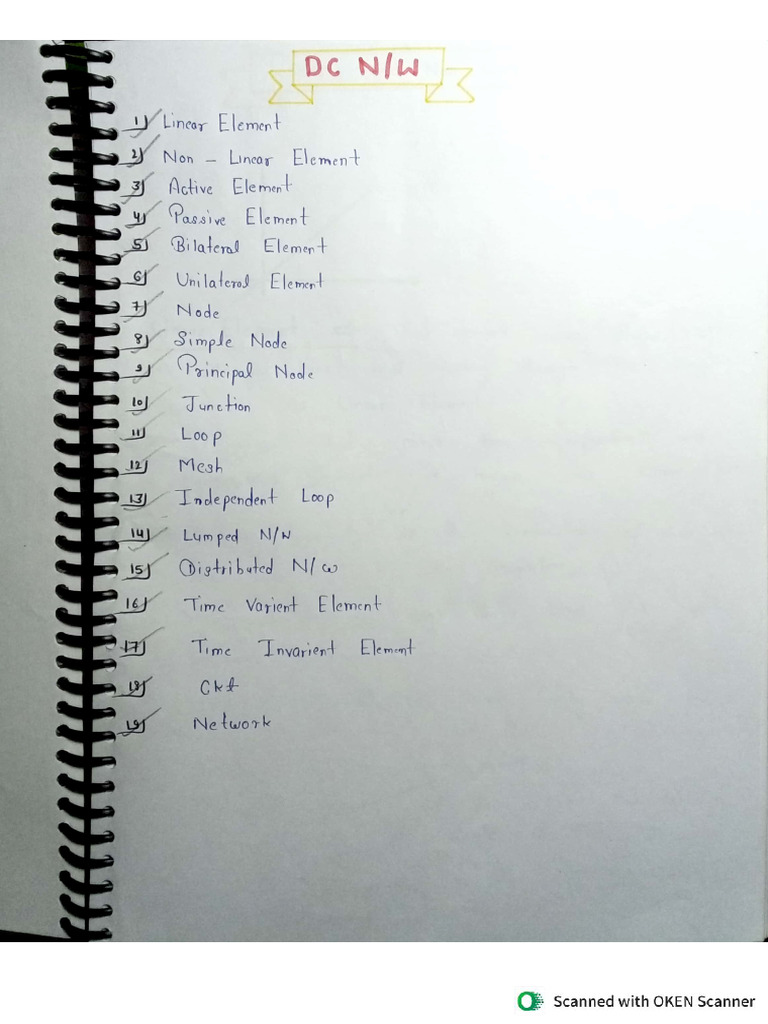 DC N/W
1) Linear Element
2) Non - Linear Element
3) Active Element
4) Passive Element
5) Bilateral Element
6) Unilateral Element
7) Node
8) Simple Node
9) Principal Node
10) Junction
11) Loop
12) Mesh
13) Independent Loop
14) Lumped N/W
15) Distributed N/W
16) Time Varient Element
17) Time Invarient Element
18) Ckt
19) Network
Scanned with OKEN Scanner